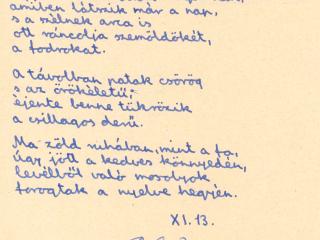 amiben látszik már a nap,
s a szélnek arca is
ott ráncolja szemöldökét,
a fodrokat.
A távolban patak csörög
s az örökéletű;
éjente benne tükrözik
a csillagos derű.
Ma zöld ruhában, mint a fa,
úgy jött a kedves könnyedén,
levélből való mosolyok
forogtak a nyelve hegyén.
XI. 13.